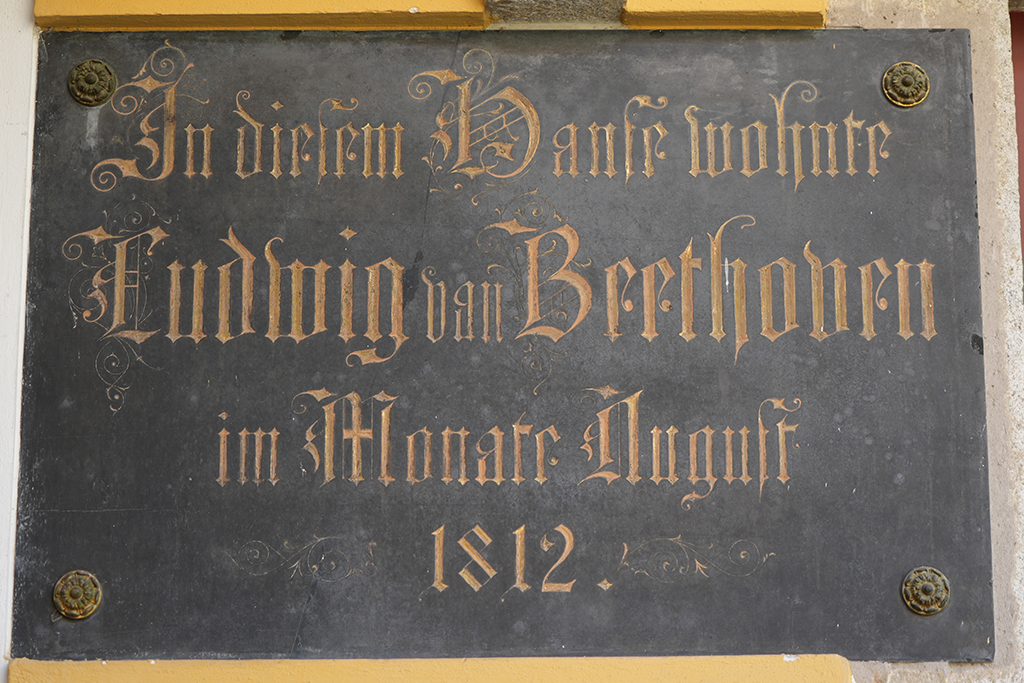 In diesem Hanse wohnte
Ludwig van Beethoven
im Monate August
1812.